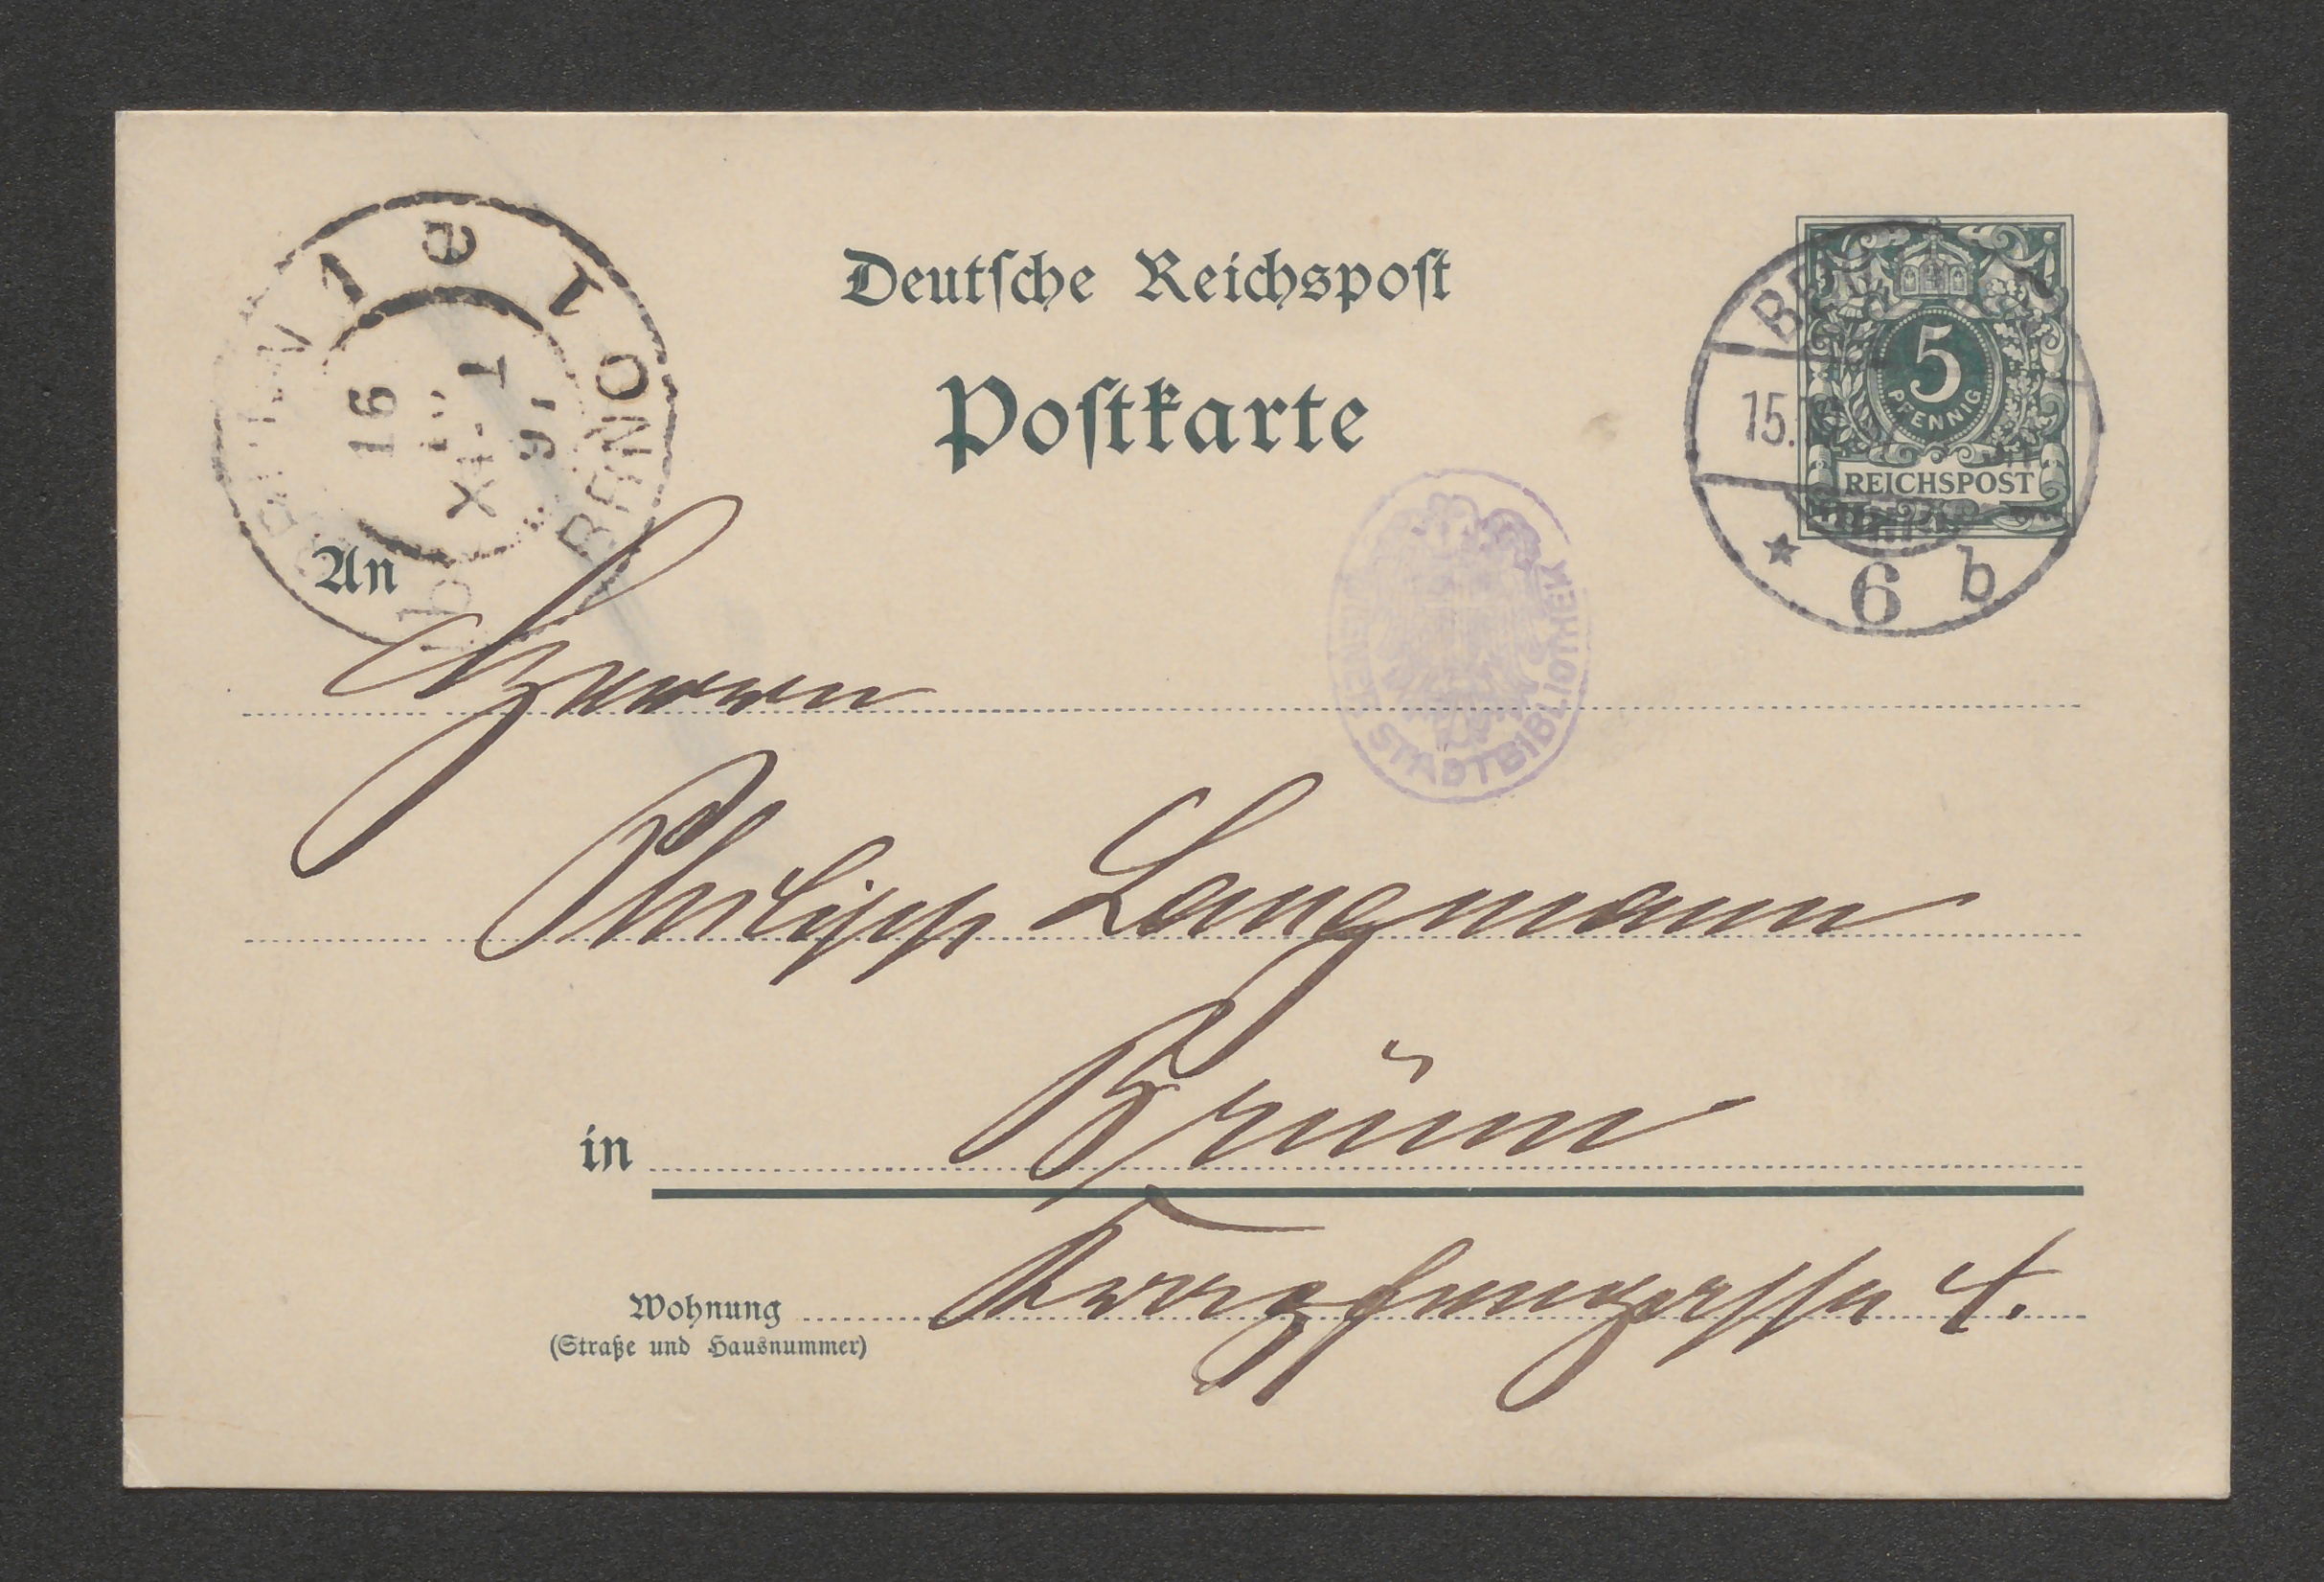 Deutſche Reichspoſt
Poſtkarte
5
PFENNIG
REICHSPOST
15.
6 b
16
91
BRNO
WIENER STADTBIBLIOTHEK
An
Herrn
Philipp Langmann
in Brünn
Wohnung 4.
(Straße und Hausnummer)